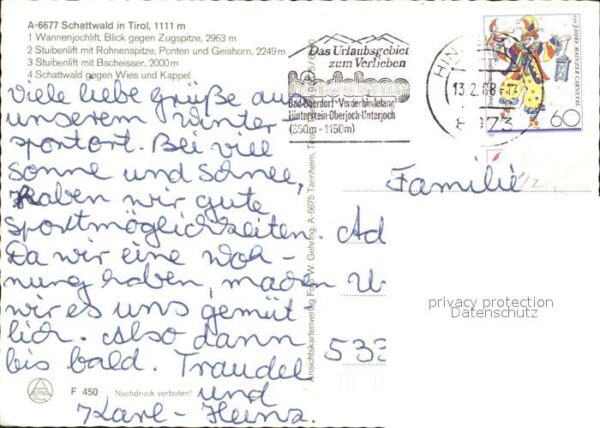 A-6677 Schattwald in Tirol, 1111 m
1 Wannenjochlift, Blick gegen Zugspitze, 2963 m
2 Stuibenlift mit Rohnenspitze, Ponten und Geishorn, 2249 m
3 Stuibenlift mit Bscheisser, 2000 m
4 Schattwald gegen Wies und Kappel
Viele liebe Grüße aus
unserem Winter
sportort. Bei viel
Sonne und Schnee,
haben wir gute
Sportmöglichkeiten.
Da wir eine Woh-
nung haben, machen
wir es uns gemüt-
lich. Also dann
bis bald. Traudel
und
Karl-Heinz.
F 450
Nachdruck verboten!
Ansichtskartenverlag Foto W. Gehring, A-6675 Tannheim, Tirol
Das Urlaubsgebiet
zum Verlieben
hindelang
Bad Oberdorf · Vorderhindelang
Hinterstein · Oberjoch · Unterjoch
(850m - 1150m)
HIN
13.2.88
8973
60
Familie
Ad
U
533
privacy protection
Datenschutz